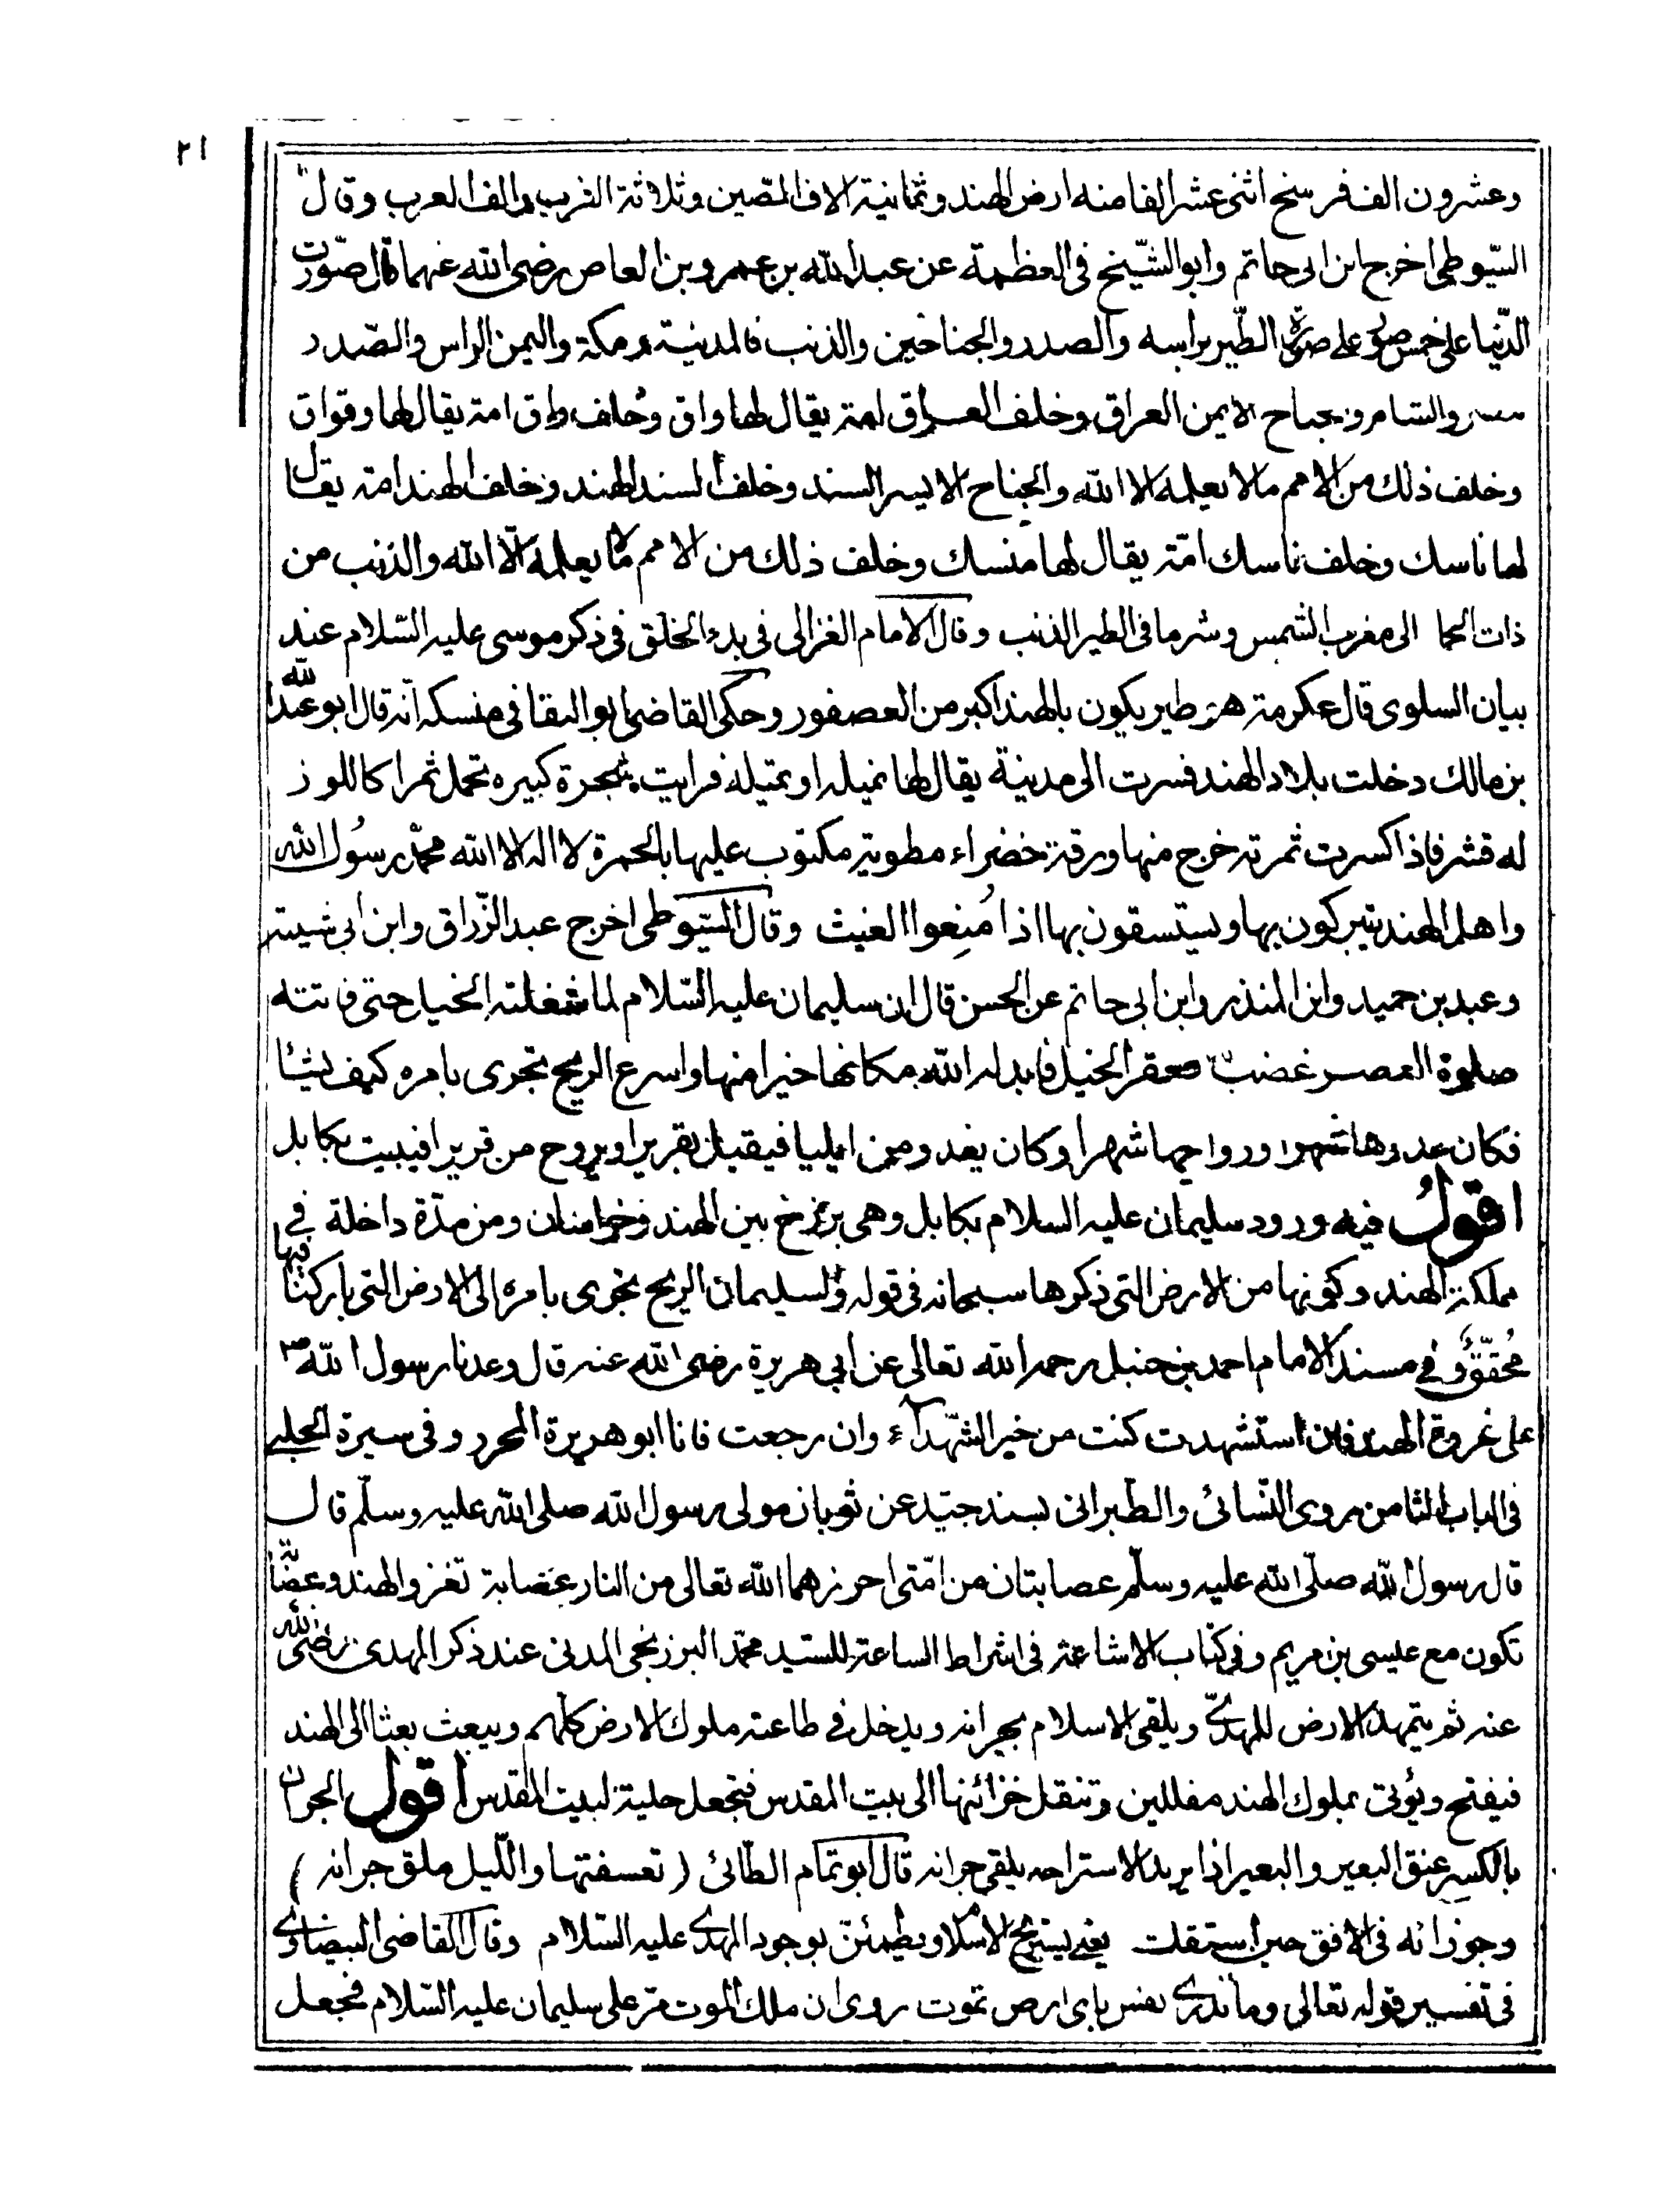 ٢١
وعشرون الف فرسخ اثنى عشر الفا منه ارض الهند وثمانية الاف الصين وثلاثة الف والف العرب وقال
السّيوطى اخرج ابن ابى حاتم وابو الشّيخ فى العظمة عن عبد الله بن عمرو بن العاص رضى الله عنهما قال صوّرت
الدّنيا على خمس صور على صورة الطّير براسه والصدر والجناحين والذنب فالمدينة ومكة واليمن الراس والصّدر
مصر والشام والجناح الايمن العراق وخلف العراق امة يقال لها واق وخلف واق امة يقال لها وقواق
وخلف ذلك من الامم ما لا يعلمه الا الله والجناح الايسر السند وخلف السند الهند وخلف الهند امة يقال
لها ناسك وخلف ناسك امّة يقال لها منسك وخلف ذلك من الامم ما لا يعلمه الّا الله والذنب من
ذات الحما الى مغرب الشمس وشر ما فى الطير الذنب وقال الامام الغزالى فى بدء الخلق فى ذكر موسى عليه السّلام عند
بيان السلوى قال عكرمة هو طير يكون بالهند اكبر من العصفور وحكى القاضى ابو البقا فى منسكه انّه قال ابو عبد الله
بن مالك دخلت بلاد الهند فسرت الى مدينة يقال لها نميله او تميله فرايت شجرة كبيره تحمل ثمرا كاللوز
له قشر فاذا كسرت ثمرته خرج منها ورقة خضراء مطوية مكتوب عليها بالحمرة لا اله الا الله محمّد رسول الله
واهل الهند يتبركون بها ويستسقون بها اذا مُنِعوا الغيث وقال السّيوطى اخرج عبد الرّزاق وابن ابى شيبة
وعبد بن حميد وابن المنذر وابن ابى حاتم عن الحسن قال ان سليمان عليه السّلام لما شغلته الخيل حتى فاتته
صلوة العصر غضب فعقر الخيل فابدله الله مكانها خيرا منها واسرع الريح تجرى بامره كيف يشا
فكان غدوها شهرا ورواحها شهرا وكان يغدو من ايليا فيقيل بقريرا ويروح من قريرا فيبيت بكابل
اقول فيه ورود سليمان عليه السلام بكابل وهى برزخ بين الهند وخراسان ومن مدّة داخلة فى
مملكة الهند وكونها من الارض التى ذكرها سبحانه فى قوله ولسليمان الريح تجرى بامره الى الارض التى باركنا فيها
مُحقّق وفى مسند الامام احمد بن حنبل رحمه الله تعالى عن ابى هريرة رضى الله عنه قال وعدنا رسول الله ص
على غزوة الهند فان استشهدت كنت من خير الشّهداء وان رجعت فانا ابو هريرة المحرر وفى سيرة الحلبى
فى الباب الثامن روى النّسائى والطّبرانى بسند جيّد عن ثوبان مولى رسول الله صلى الله عليه وسلّم قال
قال رسول الله صلّى الله عليه وسلّم عصابتان من امّتى احرزهما الله تعالى من النار عصابة تغزو الهند وعصابة
تكون مع عيسى بن مريم وفى كتاب الاشاعة فى اشراط الساعة للسّيد محمّد البرزنجى المدنى عند ذكر المهدى رضى الله
عنه ثم يتمهد الارض للمهدىّ ويلقى الاسلام بجرانه ويدخل فى طاعته ملوك الارض كلّهم ويبعث بعثا الى الهند
فيفتح ويؤتى بملوك الهند مغللين وتنقل خزائنها الى بيت المقدس فتجعل حلية لبيت المقدس اقول الجران
بالكسر عنق البعير والبعير اذا يريد الاستراحه يلقى جرانه قال ابو تمّام الطّائى (تعسفتها واللّيل ملق جرانه)
وجوزائه فى الافق حين استقلت يعنى يستريح الاسلام ويطمئنّ بوجود المهدى عليه السّلام وقال القاضى البيضاوى
فى تفسير قوله تعالى وما تدرى نفس باى ارض تموت روى ان ملك الموت مرّ على سليمان عليه السّلام فجعل